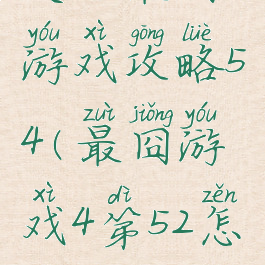 yóu xì gōng lüè
游戏攻略5
zuì jiǒng yóu
4(最囧游
xì dì zěn
戏4第52怎